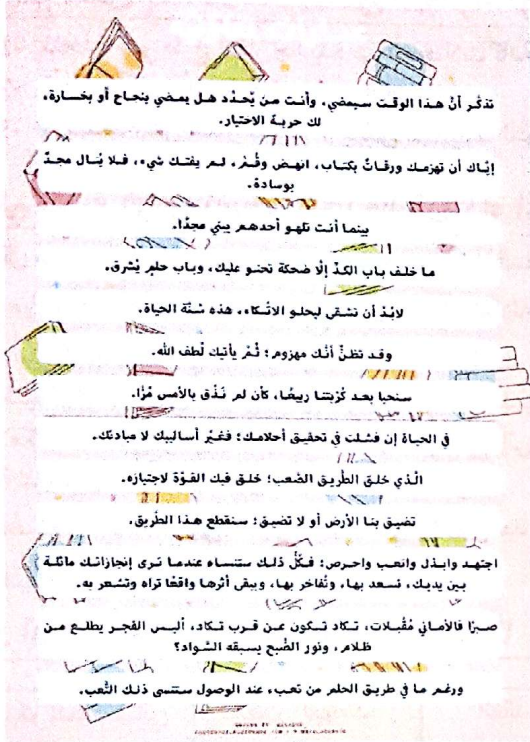 تذكَّر أنَّ هذا الوقت سيمضي، وأنت من يُحدِّد هل يمضي بنجاح أو بخسارة،
لك حرية الاختيار.
إيَّاك أن تهزمك ورقاتُ بكتاب، انهض وقُمْ، لم يفتك شيء، فلا يُنال مجدٌ
بوسادة.
بينما أنت تلهو أحدهم يبني مجدًا.
ما خلف باب الكدِّ إلَّا ضحكة تحنو عليك، وباب حلمٍ يُشرق.
لابُدَّ أن تشقى ليحلو الاتكاء، هذه سُنَّة الحياة.
وقد تظنُّ أنَّك مهزوم؛ ثُمَّ يأتيك لُطف الله.
سنحيا بعد كُربتنا ربيعًا، كأن لم نَذُق بالأمس مُرًّا.
في الحياة إن فشلت في تحقيق أحلامك؛ فغيِّر أساليبك لا مبادئك.
الَّذي خلق الطَّريق الصَّعب؛ خلق فيك القوَّة لاجتيازه.
تضيق بنا الأرض أو لا تضيق؛ سنقطع هذا الطَّريق.
اجتهد وابذل واتعب واحرص؛ فكُلُّ ذلك ستنساه عندما ترى إنجازاتك ماثلة
بين يديك، تسعد بها، وتُفاخر بها، ويبقى أثرها واقعًا تراه وتشعر به.
صبرًا فالأماني مُقبلات، تكاد تكون عن قرب تكاد، أليس الفجر يطلع من
ظلام، ونور الصُّبح يسبقه السَّواد؟
ورغم ما في طريق الحلم من تعب، عند الوصول ستنسى ذلك التَّعب.